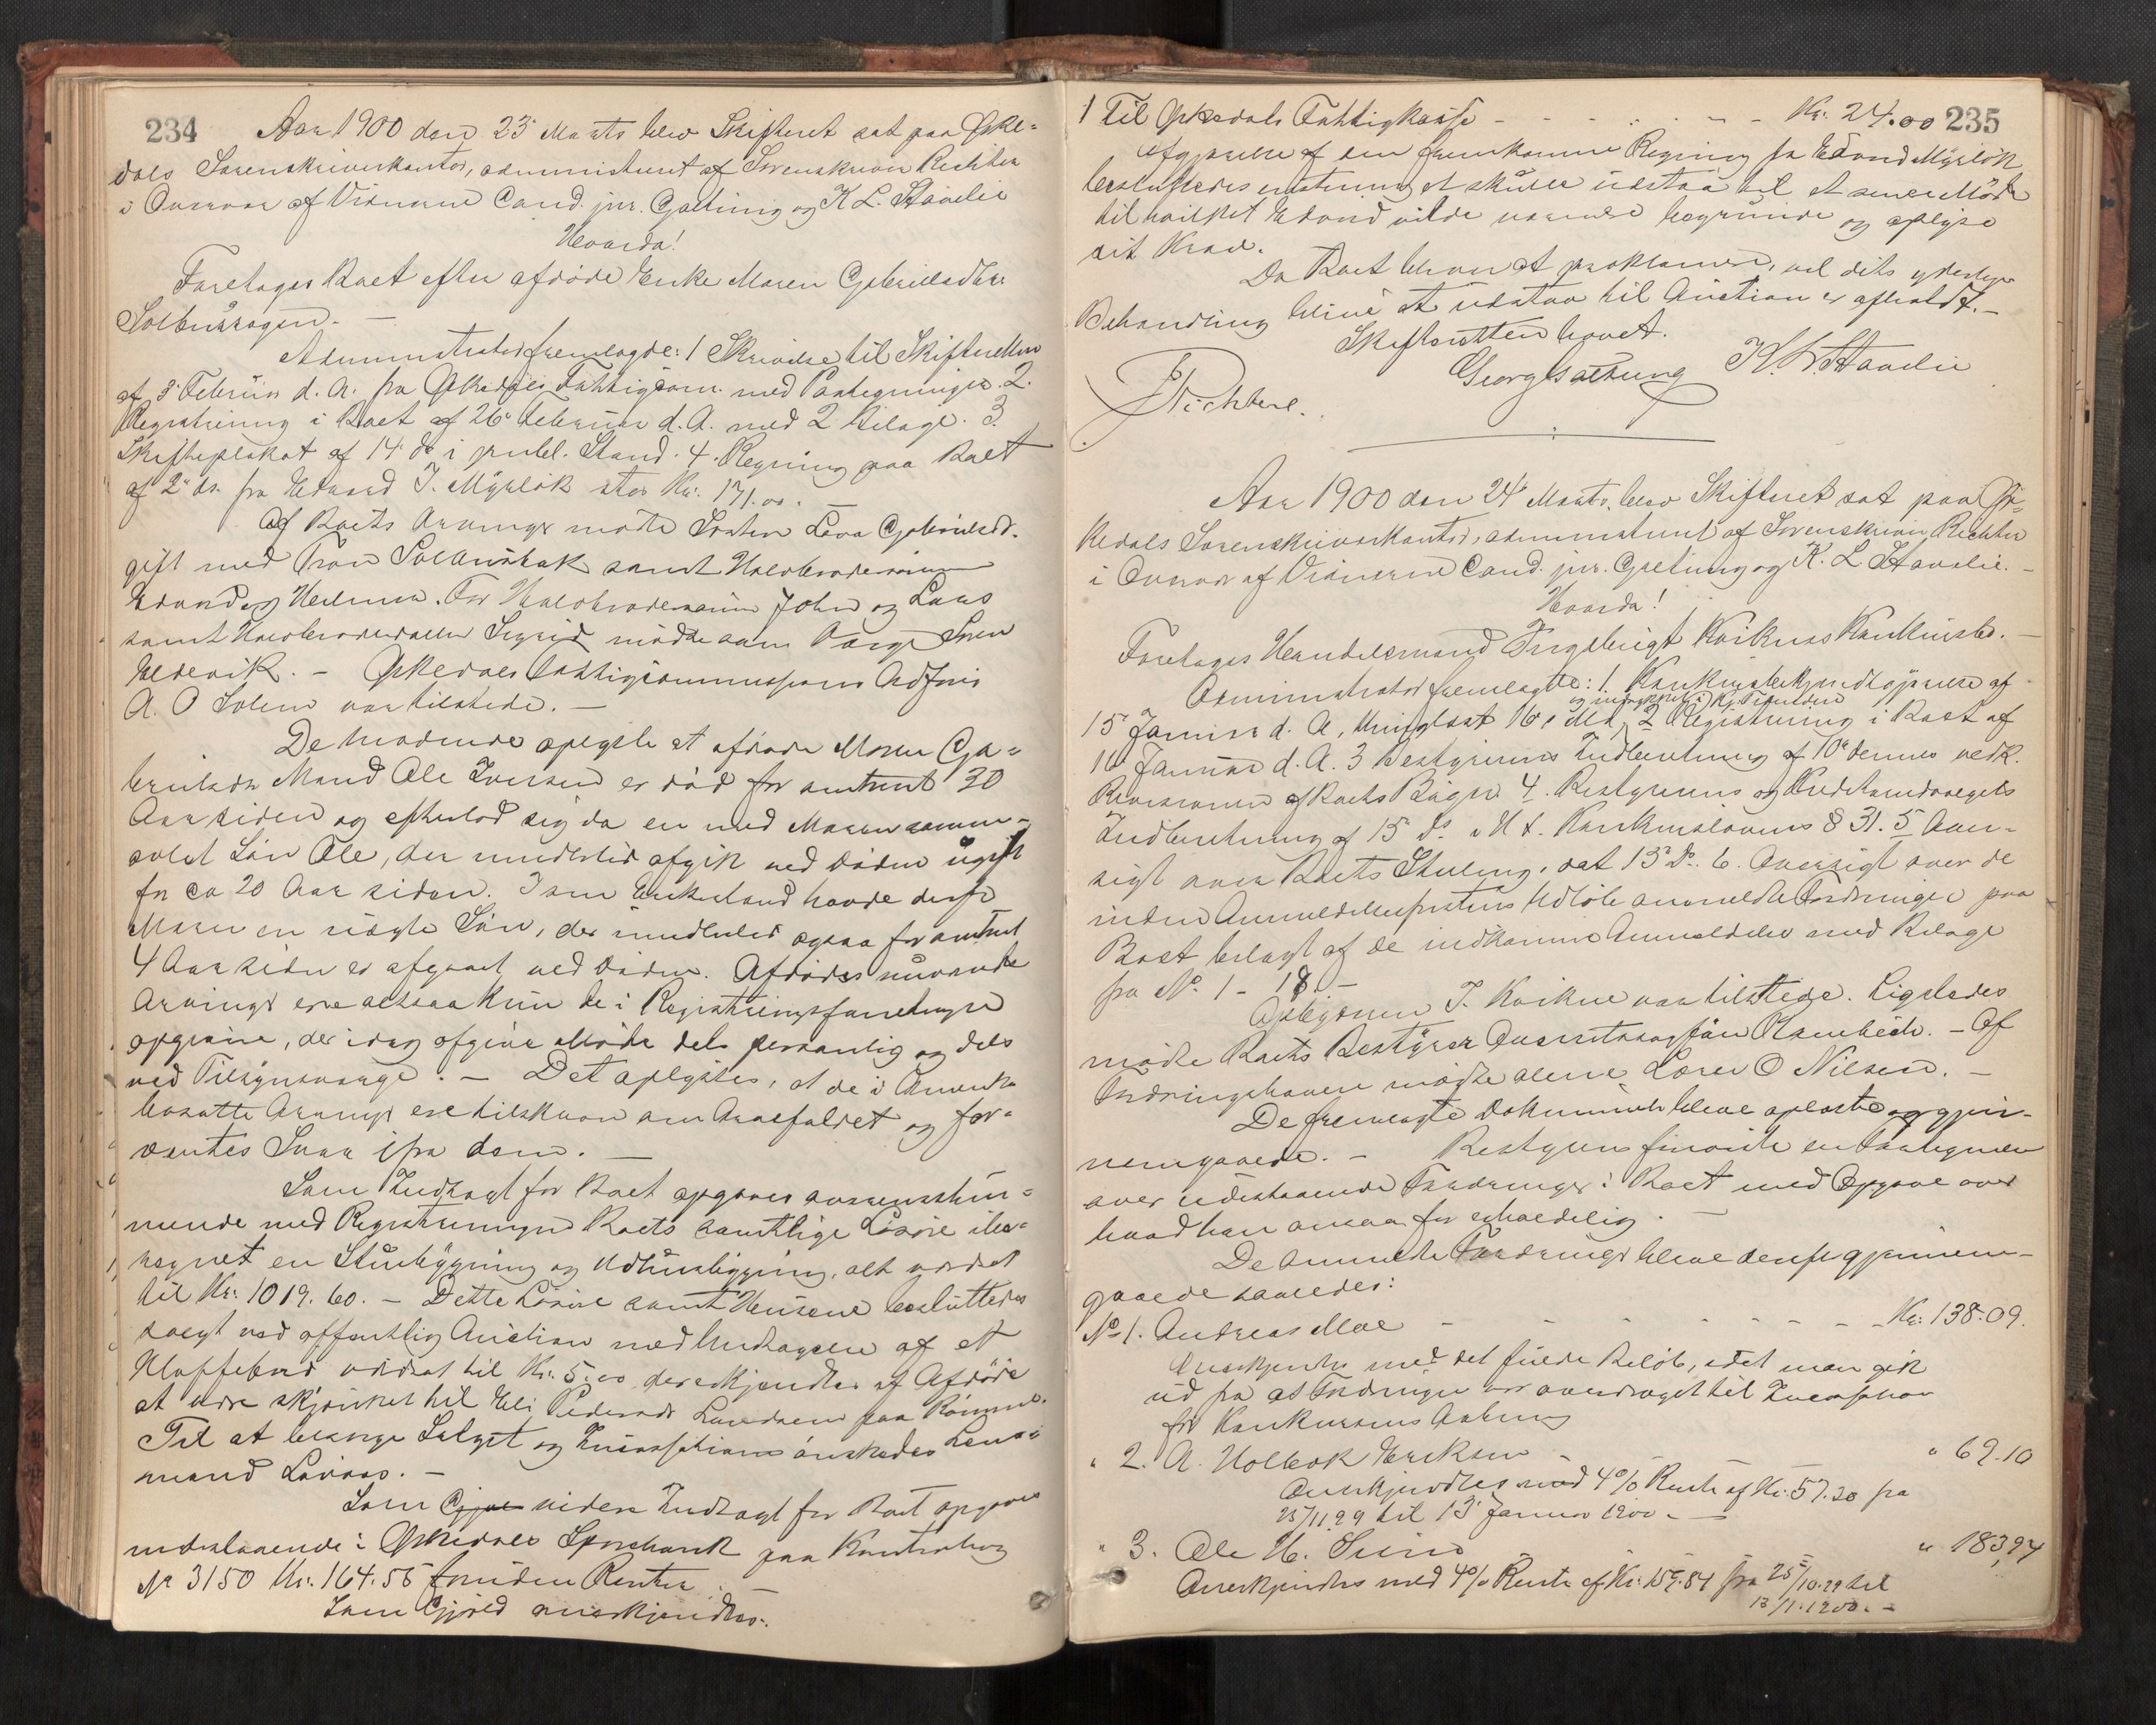 234
Aar 1900 den 23' Marts blev Skifteret sat paa Orke-
dals Sorenskriverkontor, administreret af Sorenskriver Richter
i Overvær af Vidnerne Cand. jur. Galtung og K L. Støvelie
Hvorda!
Foretages Boet efter afdøde Enke Maren Gabrielsdtr.
Solbusøgen. —
Administrator fremlagde: 1 Skrivelse til Skifteretten
af 3' Februar d. A. fra Orkedals Fattigcom. med Paategninger. 2.
Registrering i Boet af 26' Februar d. A. med 2 Bilage. 3.
Skifteplakat af 14' do i publ. Stand. 4. Regning paa Boet
af 2' ds. fra Edvard J. Myrløk stor Kr. 171.00. —
Af Boets Arvinger mødte Søsteren Gabrielsdr.
gift med samt Halvbrodersønnerne
Edvard og . For Halvbrodersønnerne John og Lars
samt Halvbroderdatter Sigrid mødte som Værge Sven
. — Orkedals Fattigcommissions Adfører
A. O Solem var tilstede. —
De mødende oplyste at afdøde Maren Ga-
brielsdrs Mand Ole Iversen er død for omtrent 30
Aar siden og efterlod sig da en med Maren sammen-
avlet Søn Ole, der imidlertid afgik ved Døden ugift
for ca 20 Aar siden. I sin Enkestand havde derpaa
Maren en uægte Søn, der imidlertid ogsaa for omtrent
4 Aar siden er afgaaet ved Døden. Afdødes nuværende
Arvinger ere altsaa kun de i Registreringsforretningen
opgivne, der idag afgive Møde dels personlig og dels
ved Tilsynsværge. — Det oplystes, at de i Amerika
bosatte Arvinger ere tilskrevne om Arvefaldet og for-
ventes Svar ifra dem. —
Som Indtægt for Boet opgaves overensstem-
mende med Registreringen Boets samtlige Løsøre ibe-
regnet en Stuebygning og Udhusbygning, alt vurderet
til Kr. 1019.60. — Dette Løsøre samt Husene besluttedes
solgt ved offentlig Auction med Undtagelse af et
Klaffebord vurderet til Kr. 5.00 der erkjendtes af Afdøde
at være skjænket til Eli Pedersdr paa
Til at besørge Salget og Incassationen ønskedes Lens-
mand . —
Som videre Indtægt for Boet opgaves
indestaaende i Orkedals Sparebank paa Kontrabog
No 3150 Kr. 164.56 foruden Renter. —
Som Gjæld anerkjendtes:
1 Til Orkedals Fattigkasse - - - - - Kr. 24.00 235
Afgjørelse af den fremkomne Regning fra Edvard Myrløk
besluttedes at skulle udstaa til et senere Møde
til hvilket Edvard vilde nærmere begrunde og oplyse
sit Krav.
Da Boet bliver at proklamere, vil dets yderligere
Behandling blive at udstaa til Auction er afholdt. —
Skifteretten hævet.
Georg Galtung K. L. Støvelie
Richter.
Aar 1900 den 24' Marts blev Skifteret sat paa Or-
kedals Sorenskriverkontor, administreret af Sorenskriver Richter
i Overvær af Vidnerne Cand. jur. Galtung og K. L Støvelie. —
Hvorda!
Foretages Handelsmand Ingebrigt Kviknes Konkursbo. —
Administrator fremlagde: 1. Konkursbekjendtgjørelse af
og indrykket i Kr. Tidende
15' Januar d. A, thinglæst 16' s. Md. 2 Registrering i Boet af
16' Januar d. A. 3 Bestyrerens Indberetning af 10' dennes vedk.
Revisionen af Boets Bøger. 4. Bestyrerens og Kreditorudvalgets
Indberetning af 15' ds. i H. t. Konkurslovens § 31. 5 Over-
sigt over Boets Stilling, dat 13' ds. 6. Oversigt over de
inden Anmeldelsesfristens Udløb anmeldte Fordringer paa
Boet belagt af de indkomne Anmeldelser med Bilage
fra No. 1 - 18. —
Opbyderen I. Kvikne var tilstede. Ligeledes
mødte Boets Bestyrer Overretssagfører . — Af
Fordringshavere mødte alene Lærer O Nilsen. —
De fremlagte Dokumenter bleve oplæste og gjen-
nemgaaede. — Bestyreren en Fortegnelse
over udestaaende Fordringer i Boet med Opgave over
hvad han ansaa for erholdelig. —
De anmeldte Fordringer bleve derpaa gjennem-
gaaede saaledes:
No 1. Andreas Moe - - - - - - Kr. 138.09.
Anerkjendtes med det fulde Beløb, idet man gik
ud fra at Fordringen var overdraget til Incassation
før Konkursens Aabning
" 2. A. Holbæk Eriksen - " 69.10
Anerkjendtes med 4% Rente af Kr. 57.30 fra
25/11 99 til 13' Januar 1900. —
" 3. Ole H. " 183,94
Anerkjendtes med 4% Rente af Kr. 159.84 fra 25/10.99 til
13/1.1900. —